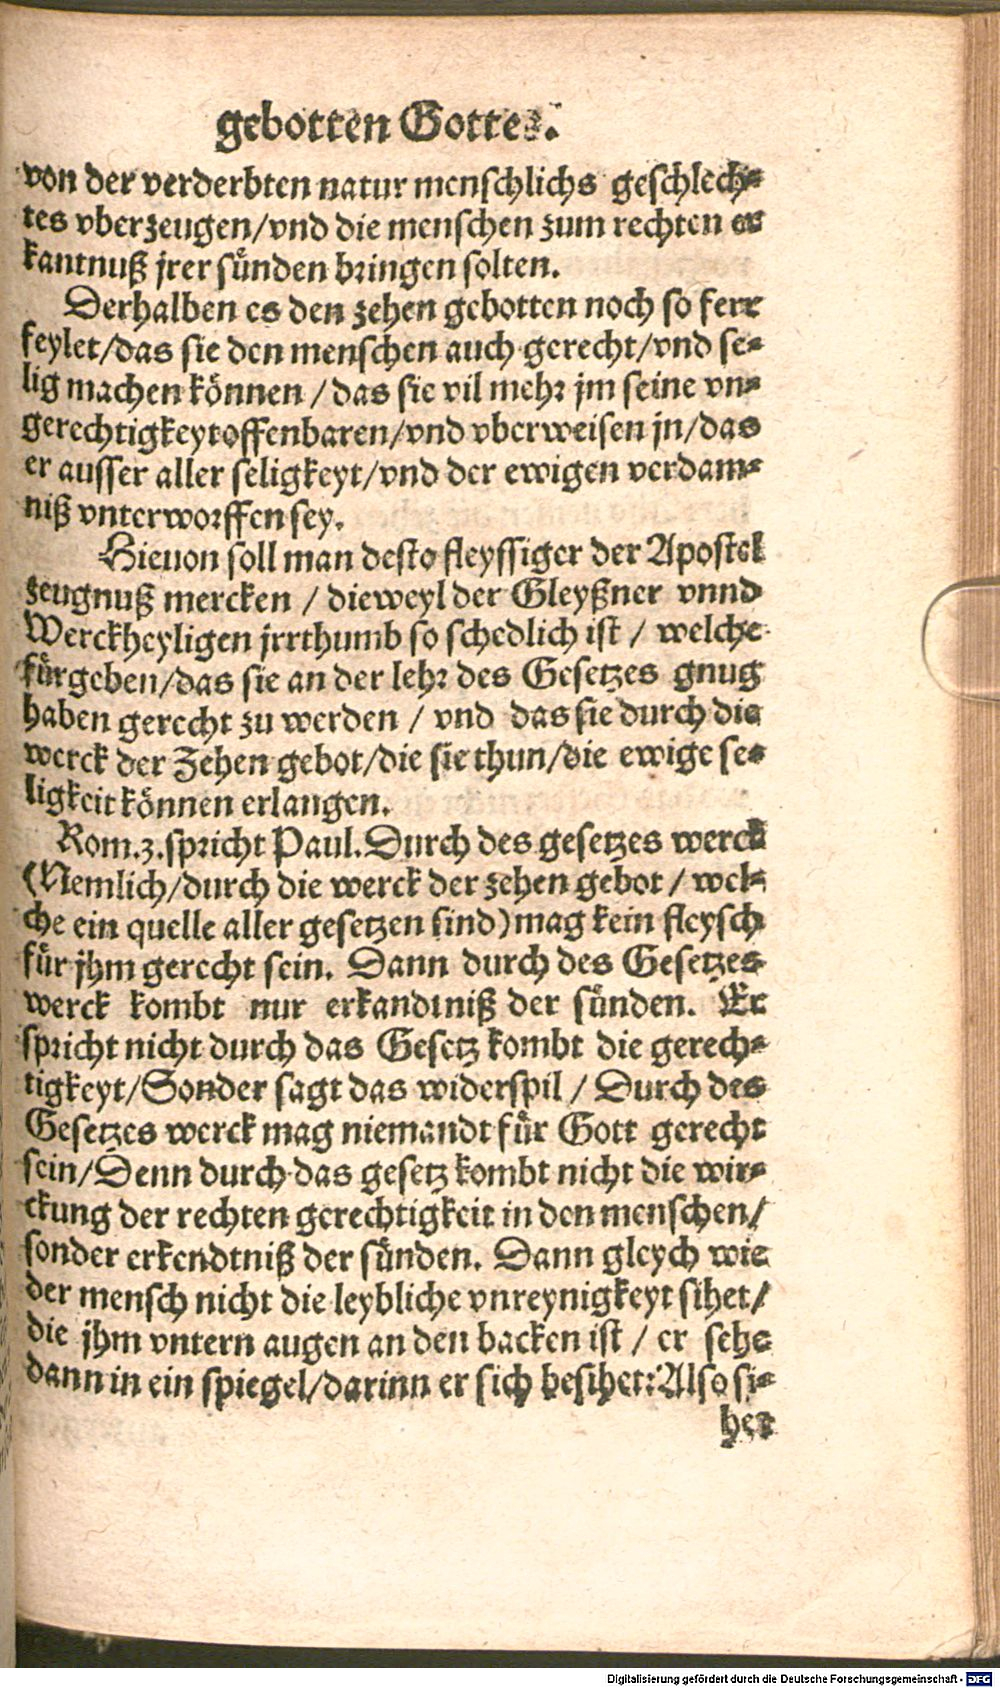 gebotten Gottes.
von der verderbten natur menschlichs geschlech-
tes vberzeugen/vnd die menschen zum rechten er
kantnuß jrer sünden bringen solten.
Derhalben es den zehen gebotten noch so ferr
feylet/das sie den menschen auch gerecht/vnd se-
lig machen können / das sie vil mehr jm seine vn-
gerechtigkeyt offenbaren/vnd vberweisen jn/das
er ausser aller seligkeyt/vnd der ewigen verdam-
niß vnterworffen sey.
Hieuon soll man desto fleyssiger der Apostel
zeugnuß mercken / dieweyl der Gleyßner vnnd
Werckheyligen jrrthumb so schedlich ist / welche
fürgeben/das sie an der lehr des Gesetzes gnug
haben gerecht zu werden / vnd das sie durch die
werck der Zehen gebot/die sie thun/die ewige se-
ligkeit können erlangen.
Rom.3.spricht Paul.Durch des gesetzes werck
(Nemlich/durch die werck der zehen gebot / wel-
che ein quelle aller gesetzen sind)mag kein fleysch
für jhm gerecht sein. Dann durch des Gesetzes
werck kombt nur erkandtniß der sünden. Er
spricht nicht durch das Gesetz kombt die gerech-
tigkeyt/Sonder sagt das widerspil / Durch des
Gesetzes werck mag niemandt für Gott gerecht
sein/Denn durch das gesetz kombt nicht die wir-
ckung der rechten gerechtigkeit in den menschen/
sonder erkendtniß der sünden. Dann gleych wie
der mensch nicht die leybliche vnreynigkeyt sihet/
die jhm vntern augen an den backen ist / er sehe
dann in ein spiegel/darinn er sich besihet:Also si-
het
Digitalisierung gefördert durch die Deutsche Forschungsgemeinschaft - DFG